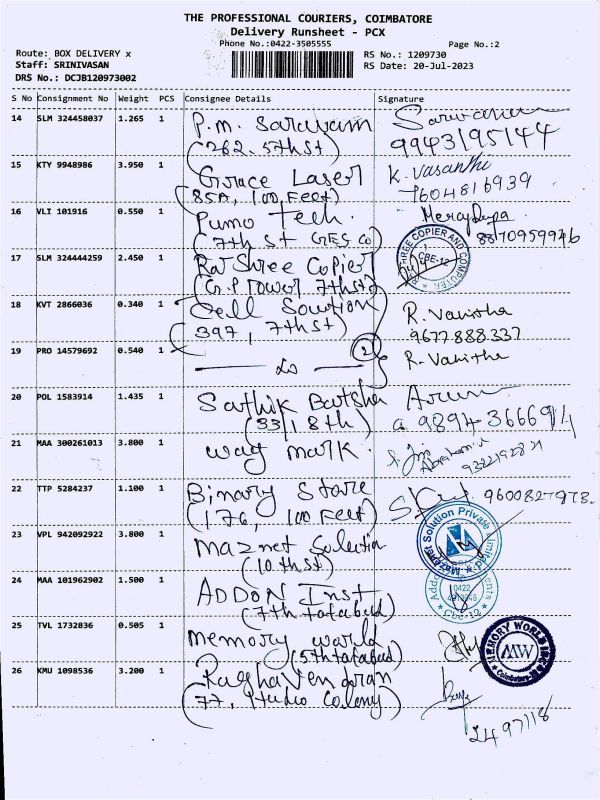 THE PROFESSIONAL COURIERS, COIMBATORE
Delivery Runsheet - PCX
Phone No.:0422-3505555
Page No.:2
Route: BOX DELIVERY x
RS No.: 1209730
Staff: SRINIVASAN
RS Date: 20-Jul-2023
DRS No.: DCJB120973002
S No Consignment No Weight PCS Consignee Details Signature
14 SLM 324458037 1.265 1 P.m. Saravanam
(262. 5th St)
9943195144
15 KTY 9948986 3.950 1 Grace Laser K. Vasanthi
(85A, 100 Feet) 7604816939
16 VLI 101916 0.550 1 Pumo Tech.
(7th St GES Co) 8870959946
17 SLM 324444259 2.450 1 Raj Shree Copier
(G.P Tower 7th St)
SHREE COPIER AND COMPUTER
CBE-12
18 KVT 2866036 0.340 1 Cell Soution R. Vanitha
(397, 7th St) 9677888337
19 PRO 14579692 0.540 1 Do (2) R. Vanitha
20 POL 1583914 1.435 1 Sathik Batsha Arun
(33/1 8th)
21 MAA 300261013 3.800 1 way mark.
22 TTP 5284237 1.100 1 Binary Store 9600827978.
(176, 100 Feet)
23 VPL 942092922 3.800 1 Maznet Solution
(10th St)
Mazenet Solution Private Limited
24 MAA 101962902 1.500 1 ADDON Inst
(7th tatabad)
0422
CBE-12
25 TVL 1732836 0.505 1 Memory world
(5th tatabad)
MEMORY WORLD
MW
26 KMU 1098536 3.200 1 Raghavendran
(77, Studio Colony)
2497118